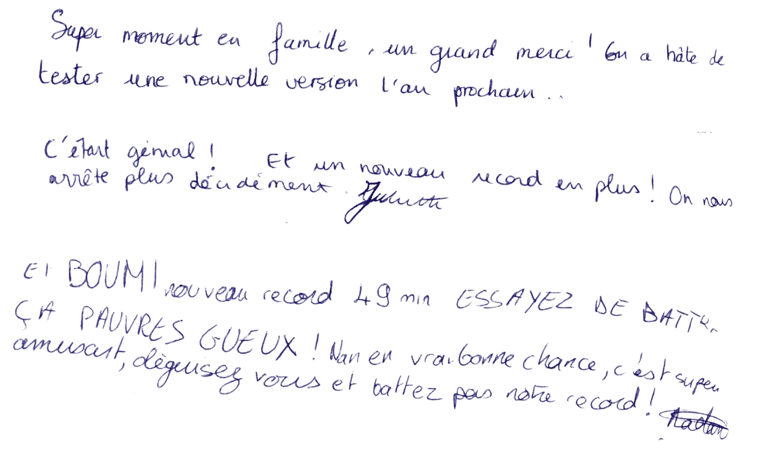 Super moment en famille, un grand merci ! On a hâte de
tester une nouvelle version l'an prochain ..
C'était génial ! Et un nouveau record en plus ! On nous
arrête plus décidément. Juliette
Et BOUM ! nouveau record 49 min ESSAYEZ DE BATTRE
ÇA PAUVRES GUEUX ! Nan en vrai bonne chance, c'est super
amusant, déguisez vous et battez pas notre record !